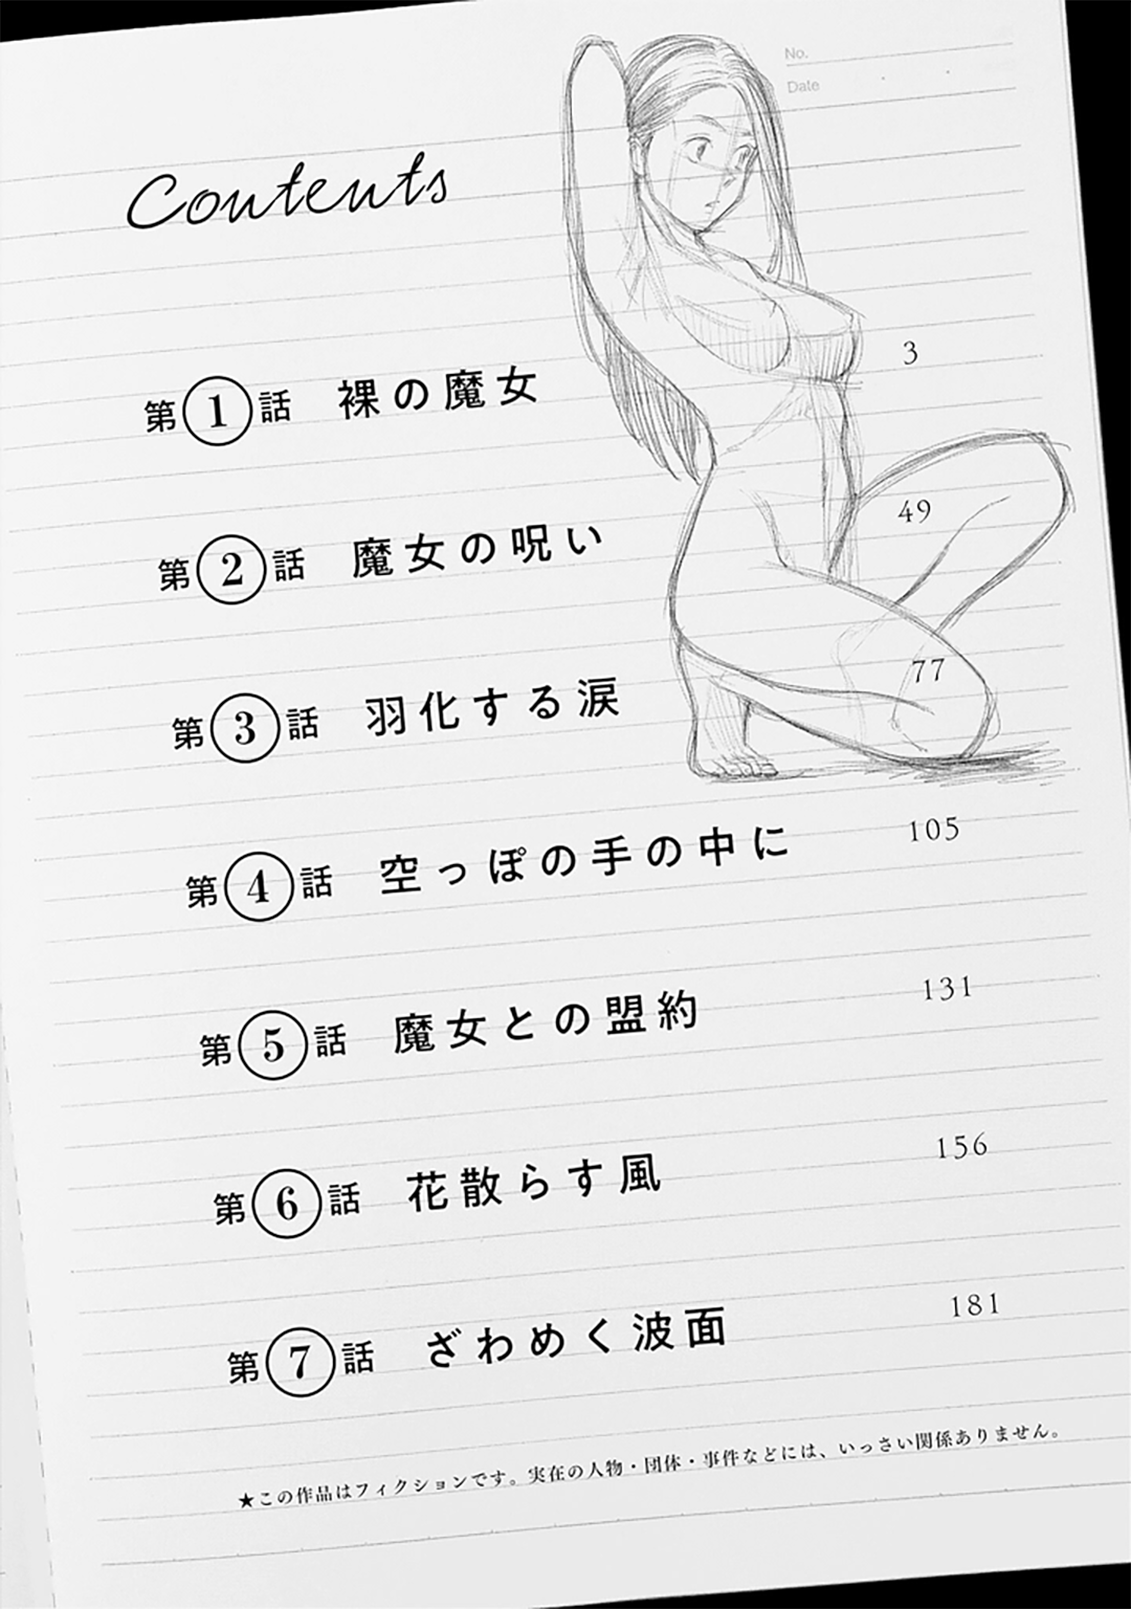 No.
Date
Contents
第1話 裸の魔女 3
第2話 魔女の呪い 49
第3話 羽化する涙 77
第4話 空っぽの手の中に 105
第5話 魔女との盟約 131
第6話 花散らす風 156
第7話 ざわめく波面 181
★この作品はフィクションです。実在の人物・団体・事件などには、いっさい関係ありません。